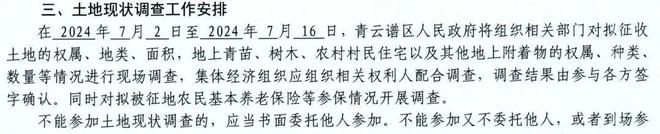 三、土地现状调查工作安排
在 2024 年 7 月 2 日至 2024 年 7 月 16 日，青云谱区人民政府将组织相关部门对拟征收
土地的权属、地类、面积，地上青苗、树木、农村村民住宅以及其他地上附着物的权属、种类、
数量等情况进行现场调查，集体经济组织应组织相关权利人配合调查，调查结果由参与各方签
字确认。同时对拟被征地农民基本养老保险等参保情况开展调查。
不能参加土地现状调查的，应当书面委托他人参加。不能参加又不委托他人，或者到场参